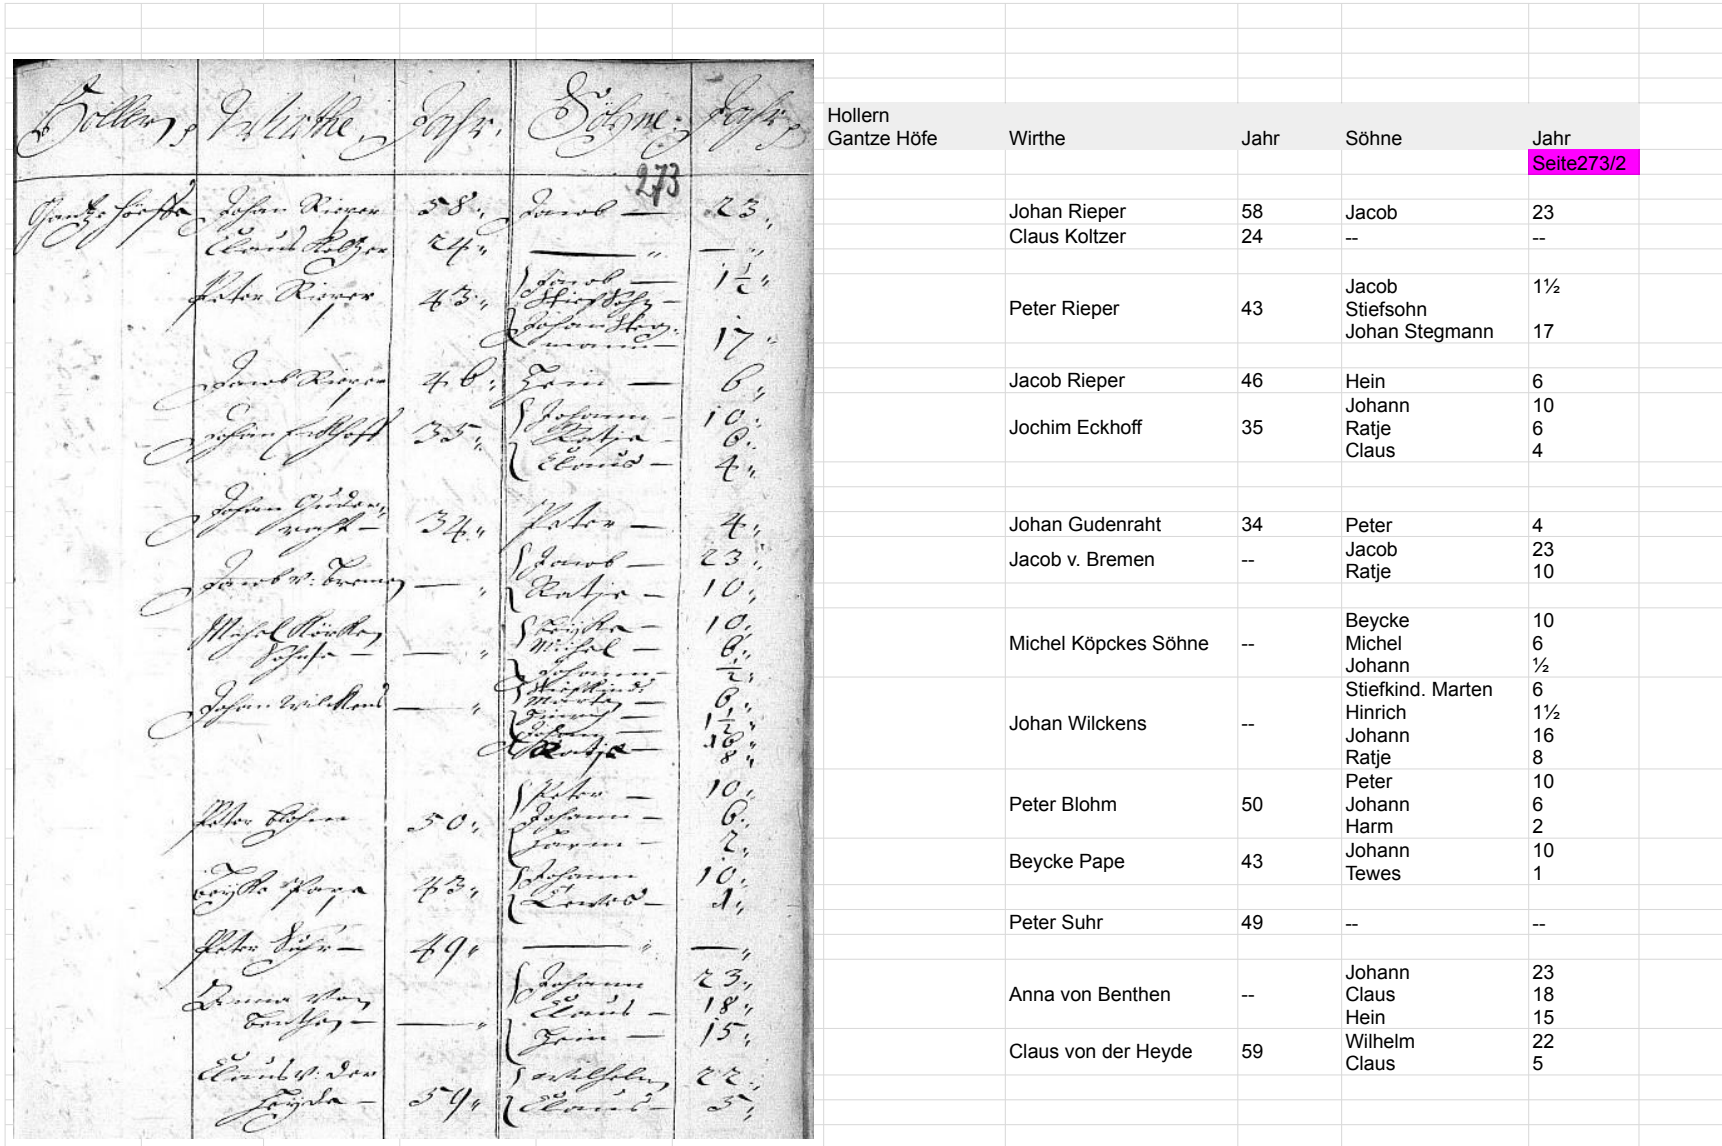 Hollern, Wirthe, Jahr. Söhne: Jahr,
273
Gantze Höeffe Johan Rieper 58 Jacob — 23
Claus Koltzer 24 — —
Peter Rieper 43 Jacob — 1½
Stiefsohn —
Johan Steg-
mann — 17
Jacob Rieper 46 Hein — 6
Eckhoff 35 Johann — 10
Ratje — 6
Claus — 4
Johan Guden-
raht — 34 Peter — 4
Jacob v: Bremen — Jacob — 23
Ratje — 10
Michel Köpcken Beycke — 10
Söhne — — Michel — 6
Johann — ½
Johan Wilckens — Stiefkind:
Marten — 6
Hinrich — 1½
Johann — 16
Ratje — 8
Peter Blohm 50 Peter — 10
Johann — 6
Harm — 2
Beycke Pape 43 Johann 10
Tewes — 1
Peter Suhr — 49 — —
Anna von Johann 23
Benthen — — Claus — 18
Hein — 15
Claus v: der Wilhelm 22
Heyde — 59 Claus — 5
Hollern
Gantze Höfe Wirthe Jahr Söhne Jahr
Seite273/2
Johan Rieper 58 Jacob 23
Claus Koltzer 24 -- --
Jacob 1½
Peter Rieper 43 Stiefsohn
Johan Stegmann 17
Jacob Rieper 46 Hein 6
Johann 10
Jochim Eckhoff 35 Ratje 6
Claus 4
Johan Gudenraht 34 Peter 4
Jacob v. Bremen -- Jacob 23
Ratje 10
Beycke 10
Michel Köpckes Söhne -- Michel 6
Johann ½
Stiefkind. Marten 6
Hinrich 1½
Johan Wilckens -- Johann 16
Ratje 8
Peter 10
Peter Blohm 50 Johann 6
Harm 2
Beycke Pape 43 Johann 10
Tewes 1
Peter Suhr 49 -- --
Johann 23
Anna von Benthen -- Claus 18
Hein 15
Claus von der Heyde 59 Wilhelm 22
Claus 5